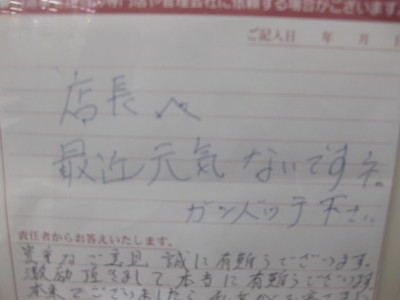 専門店や管理会社に依頼する場合がございます。
ご記入日 年 月 日
店長へ
最近元気ないですネ。
ガンバッテ下さい。
責任者からお答えいたします。
貴重なご意見誠に有難うございます。
激励頂きまして本当に有難うございます。
本来でございましたら